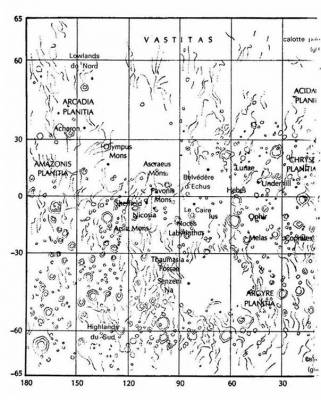 65
VASTITAS
calotte
60
Lowlands
du Nord
ACIDA
PLANI
ARCADIA
PLANITIA
Acheron
30
Olympus
Mons
AMAZONIS
PLANITIA
Ascraeus
Mons
Belvédère
d'Echus
Lunae
CHRYSE
PLANITIA
Underhill
Hebes
Pavonis
Mons
0
Sheffield
Nicosia
Le Caire
Ius
Ophir
Arsia Mons
Noctis
Labyrinthus
Melas
-30
Thaumasia
Fossae
Senzeni
Na
ARGYRE
PLANITIA
-60
Highlands
du Sud
-65
180
150
120
90
60
30